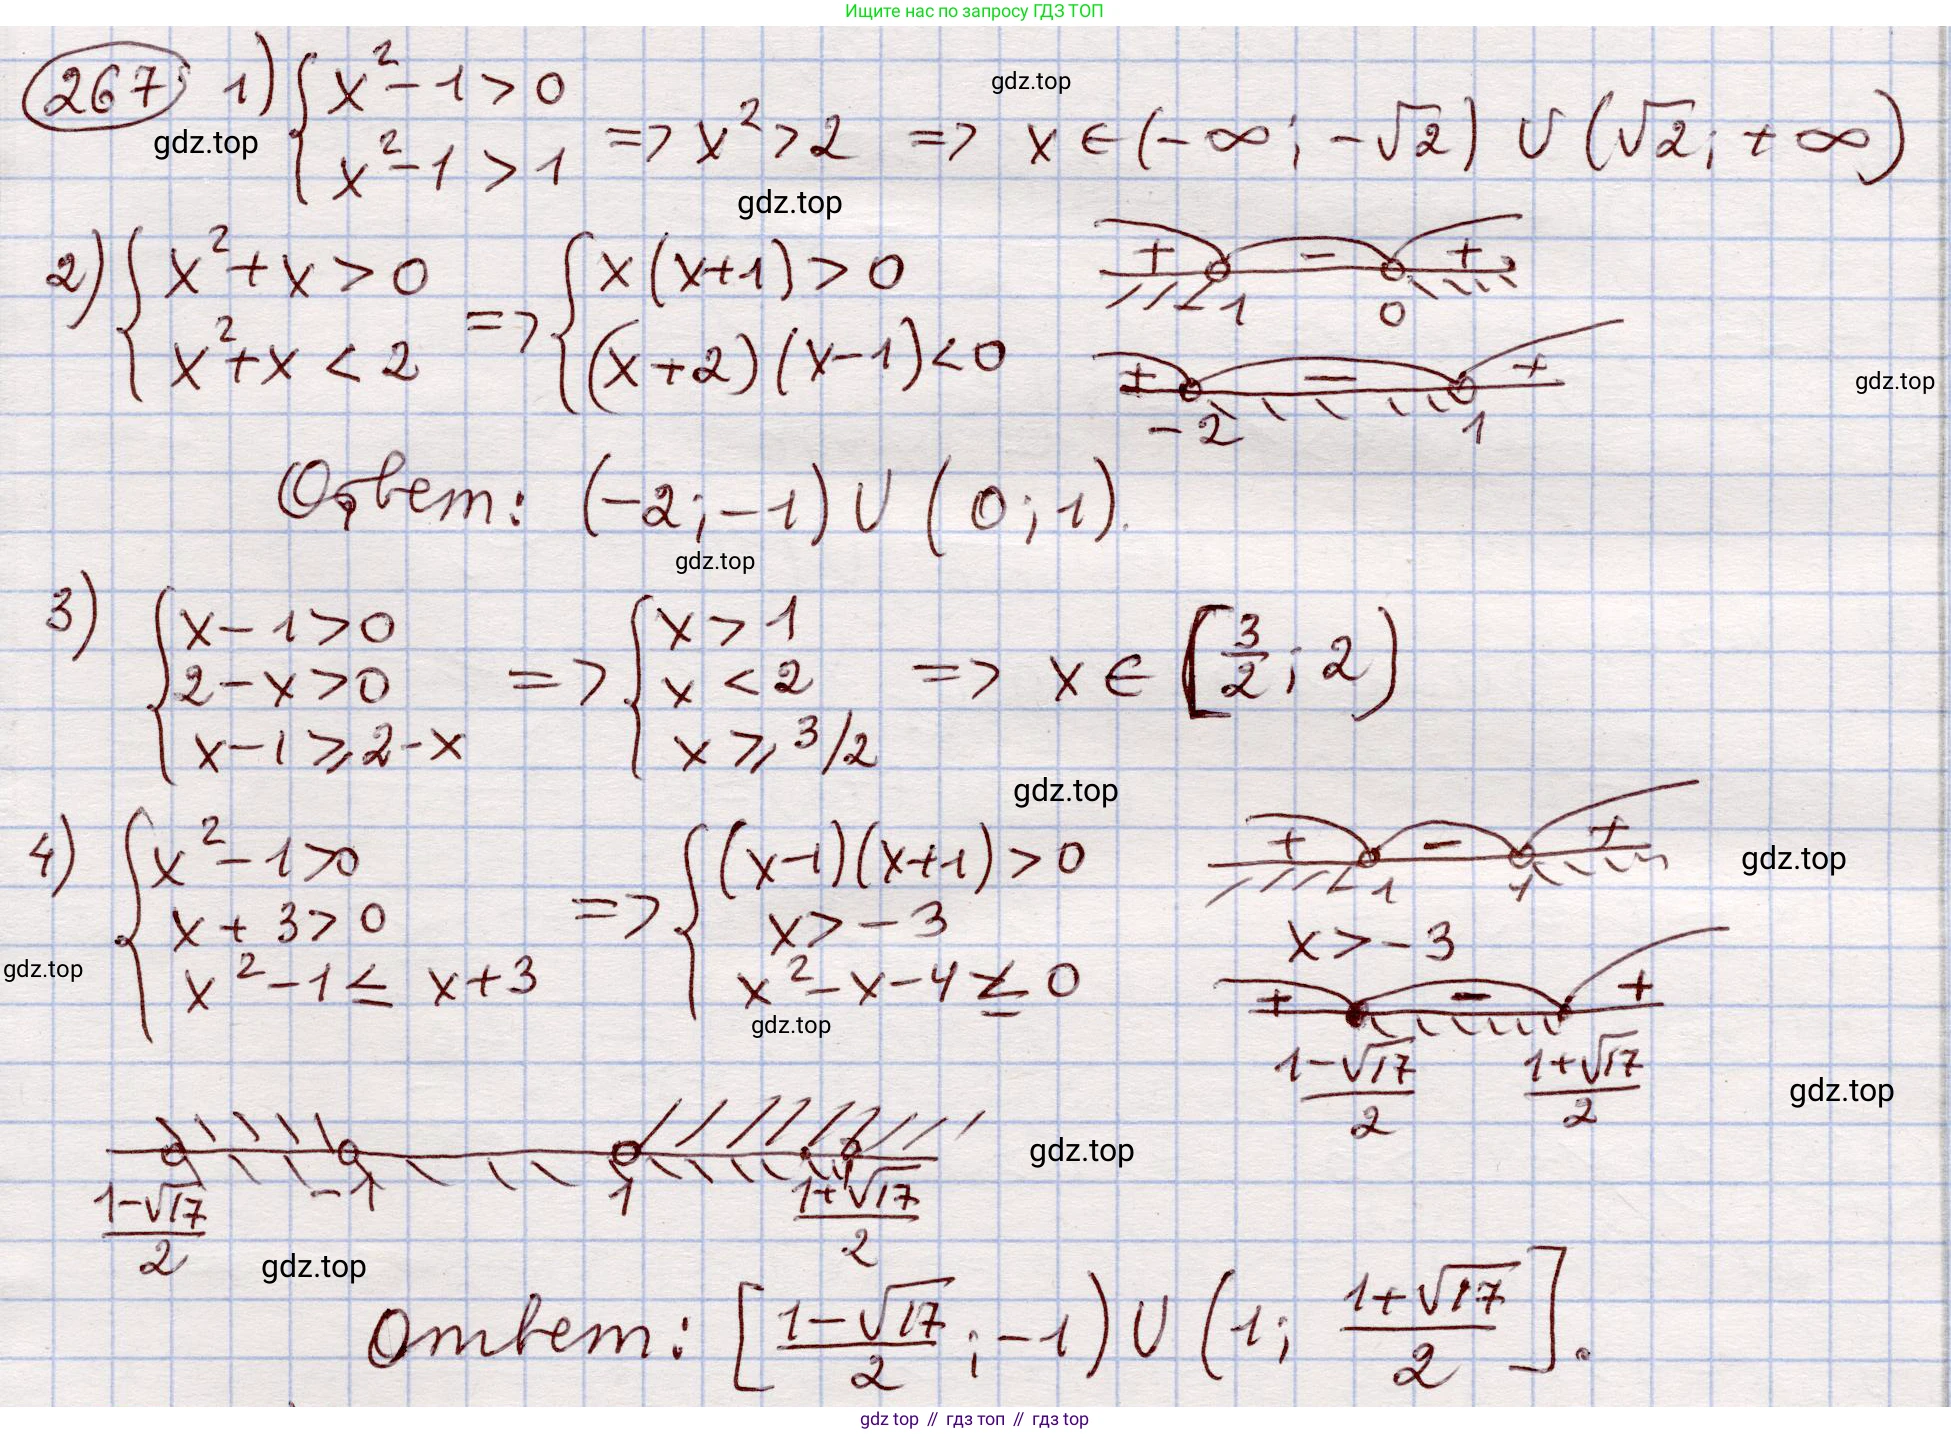 Ищите нас по запросу ГДЗ ТОП
267 1) { x² - 1 > 0
x² - 1 > 1 => x² > 2 => x ∈ (-∞; -√2) ∪ (√2; +∞)
gdz.top
gdz.top
gdz.top
2) { x² + x > 0
x² + x < 2 => { x(x+1) > 0
(x+2)(x-1) < 0
+ - +
-1 0
+ - +
-2 1
gdz.top
Ответ: (-2; -1) ∪ (0; 1).
gdz.top
3) { x - 1 > 0
2 - x > 0
x - 1 ⩾ 2 - x
=> { x > 1
x < 2
x ⩾ 3/2
=> x ∈ [3/2; 2)
gdz.top
4) { x² - 1 > 0
x + 3 > 0
x² - 1 ≤ x + 3
=> { (x-1)(x+1) > 0
x > -3
x² - x - 4 ≤ 0
+ - +
-1 1
gdz.top
x > -3
+ - +
(1-√17)/2 (1+√17)/2
gdz.top
gdz.top
gdz.top
(1-√17)/2 -1 1 (1+√17)/2
gdz.top
gdz.top
Ответ: [(1-√17)/2; -1) ∪ (1; (1+√17)/2].
gdz top // гдз топ // gdz top